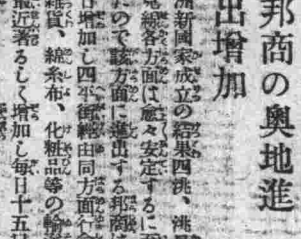 邦商の奥地進
出增加
洲新國家成立の結果四洮、洮
沿線各方面は愈々安定するに
たので該方面に進出する邦商は
日增加し四平街經由同方面行
雜貨、綿糸布、化粧品等の輸
最近著るしく增加し每日十五